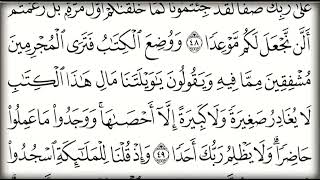 عَلَىٰ رَبِّكَ صَفًّا لَّقَدْ جِئْتُمُونَا كَمَا خَلَقْنَٰكُمْ أَوَّلَ مَرَّةٍۭ بَلْ زَعَمْتُمْ
أَلَّن نَّجْعَلَ لَكُم مَّوْعِدًا ٤٨ وَوُضِعَ ٱلْكِتَٰبُ فَتَرَى ٱلْمُجْرِمِينَ
مُشْفِقِينَ مِمَّا فِيهِ وَيَقُولُونَ يَٰوَيْلَتَنَا مَالِ هَٰذَا ٱلْكِتَٰبِ
لَا يُغَادِرُ صَغِيرَةً وَلَا كَبِيرَةً إِلَّآ أَحْصَىٰهَا ۚ وَوَجَدُوا۟ مَا عَمِلُوا۟
حَاضِرًا ۗ وَلَا يَظْلِمُ رَبُّكَ أَحَدًا ٤٩ وَإِذْ قُلْنَا لِلْمَلَٰٓئِكَةِ ٱسْجُدُوا۟